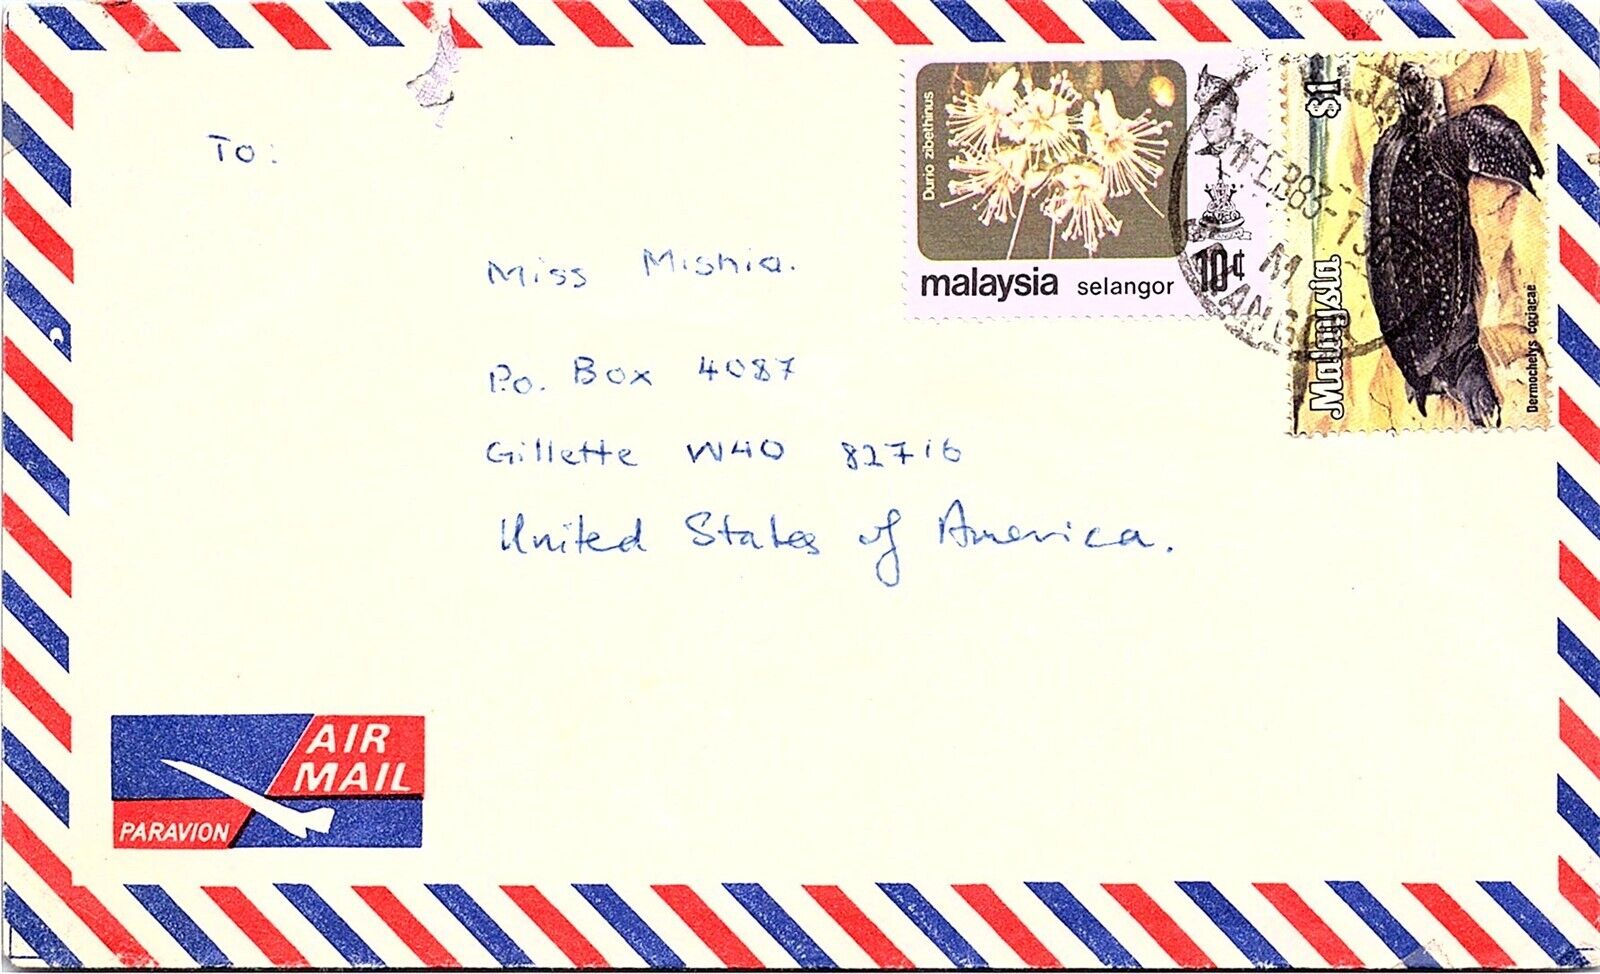 To:
Miss Mishia.
P.o. Box 4087
Gillette W40 82716
United States of America.
Durio zibethinus
malaysia selangor
10¢
$1
Malaysia
Dermochelys coriacae
FEB83-1
M
ANGO
AIR
MAIL
PARAVION